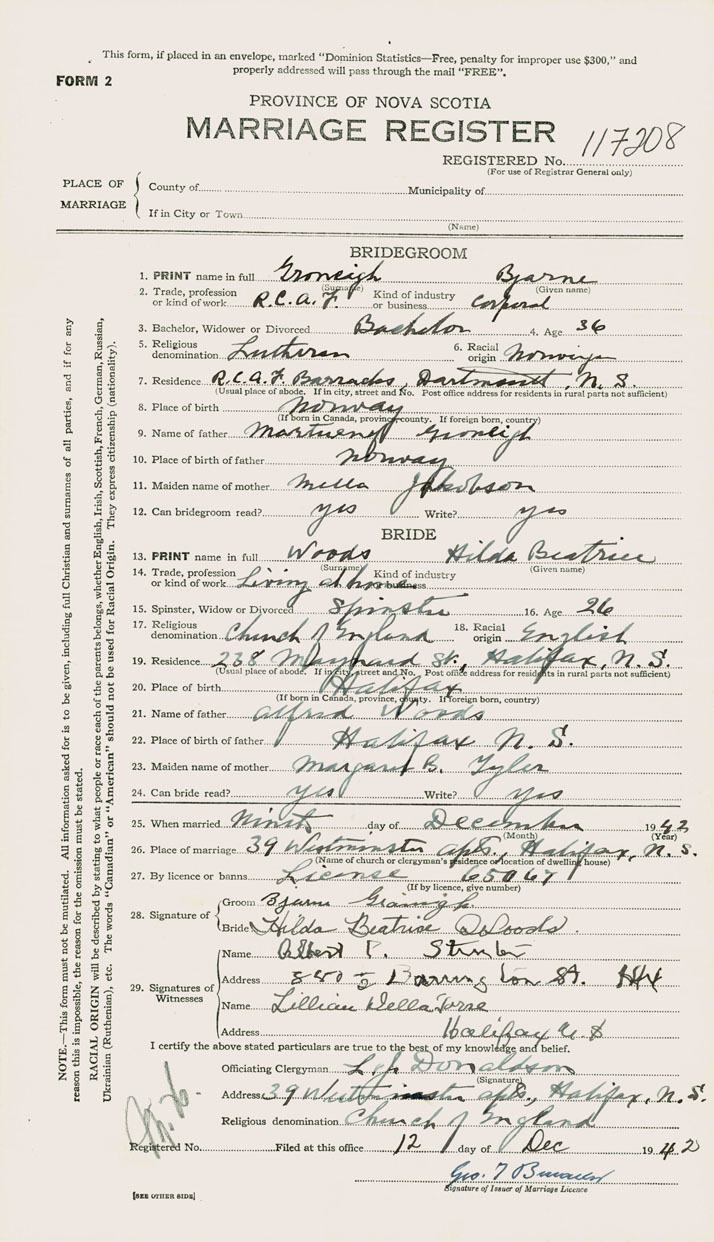 This form, if placed in an envelope, marked "Dominion Statistics—Free, penalty for improper use $300," and
properly addressed will pass through the mail "FREE".
FORM 2
PROVINCE OF NOVA SCOTIA
MARRIAGE REGISTER
117208
REGISTERED No.
(For use of Registrar General only)
PLACE OF MARRIAGE
County of Municipality of
If in City or Town
(Name)
BRIDEGROOM
1. PRINT name in full Groneigh Bjarne
(Surname) (Given name)
2. Trade, profession or kind of work R.C.A.F. Kind of industry or business Corporal
3. Bachelor, Widower or Divorced Bachelor 4. Age 36
5. Religious denomination Lutheran 6. Racial origin
7. Residence R.C.A.F. Barracks, Dartmouth, N.S.
(Usual place of abode. If in city, street and No. Post office address for residents in rural parts not sufficient)
8. Place of birth Norway
(If born in Canada, province, county. If foreign born, country)
9. Name of father
10. Place of birth of father Norway
11. Maiden name of mother Jakobson
12. Can bridegroom read? yes Write? yes
BRIDE
13. PRINT name in full Woods Hilda Beatrice
(Surname) (Given name)
14. Trade, profession or kind of work Living at home Kind of industry or business
15. Spinster, Widow or Divorced Spinster 16. Age 26
17. Religious denomination Church of England 18. Racial origin English
19. Residence 238 Maynard St., Halifax, N.S.
(Usual place of abode. If in city, street and No. Post office address for residents in rural parts not sufficient)
20. Place of birth Halifax
(If born in Canada, province, county. If foreign born, country)
21. Name of father Alfred Woods
22. Place of birth of father Halifax N.S.
23. Maiden name of mother Margaret B. Tyler
24. Can bride read? yes Write? yes
25. When married Ninth day of December 1942
(Month) (Year)
26. Place of marriage 39 Westminster apts., Halifax, N.S.
(Name of church or clergyman's residence or location of dwelling house)
27. By licence or banns License 65067
(If by licence, give number)
28. Signature of
Groom Bjarne
Bride Hilda Beatrice Woods
29. Signatures of Witnesses
Name Albert P.
Address 880 ½ Barrington St. Hfx
Name Lillian DellaTorre
Address Halifax N.S
I certify the above stated particulars are true to the best of my knowledge and belief.
Officiating Clergyman Donaldson
(Signature)
Address 39 Westminster apts., Halifax, N.S.
Religious denomination Church of England
Registered No. Filed at this office 12 day of Dec 1942
Geo. T
Signature of Issuer of Marriage Licence
[SEE OTHER SIDE]
NOTE.—This form must not be mutilated. All information asked for is to be given, including full Christian and surnames of all parties, and if for any
reason this is impossible, the reason for the omission must be stated.
RACIAL ORIGIN will be described by stating to what people or race each of the parents belongs, whether English, Irish, Scottish, French, German, Russian,
Ukrainian (Ruthenian), etc. The words "Canadian" or "American" should not be used for Racial Origin. They express citizenship (nationality).